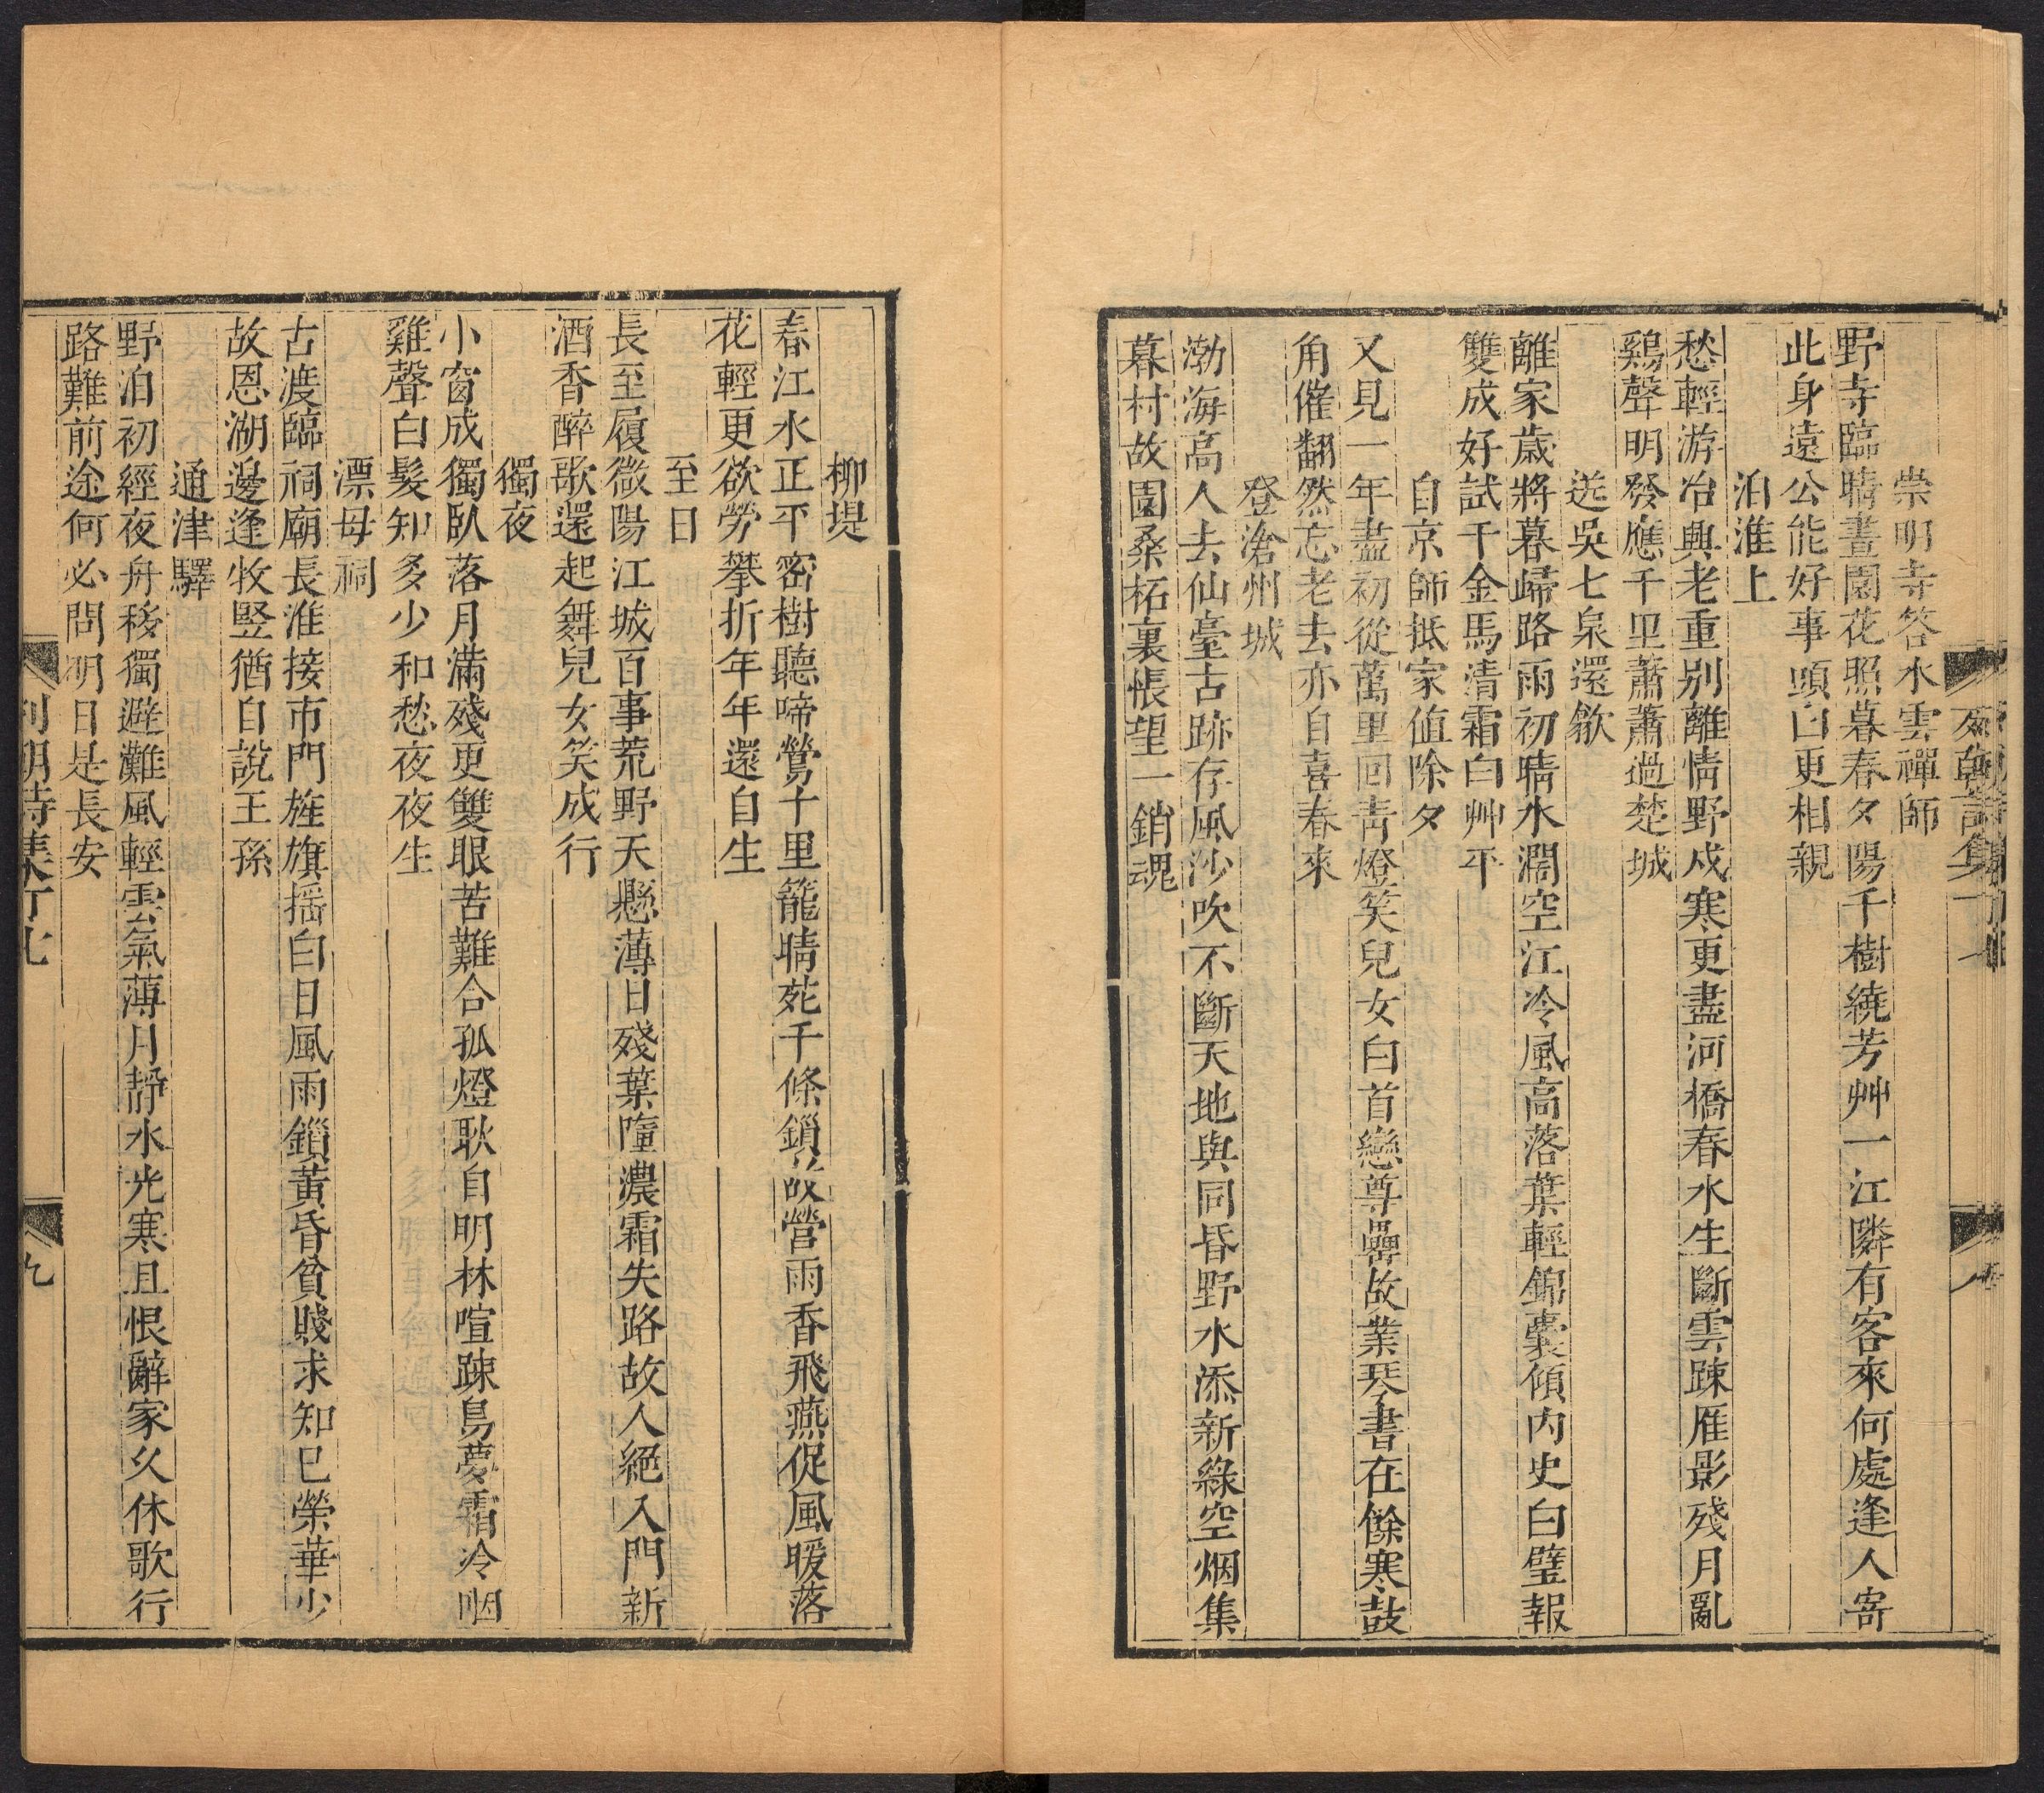 崇明寺答水雲禪師
野寺臨晴晝園花照暮春夕陽千樹繞芳艸一江隣有客來何處逢人寄
此身遠公能好事頭白更相親
泊淮上
愁輕游冶興老重别離情野戍寒更盡河橋春水生斷雲踈雁影殘月亂
鷄聲明發應千里蕭蕭過楚城
送吳七泉還歙
離家歲將暮歸路雨初晴水濶空江冷風高落葉輕錦囊傾内史白璧報
雙成好試千金馬清霜白艸平
自京師抵家值除夕
又見一年盡初從萬里回青燈笑兒女白首戀尊罍故業琴書在餘寒鼓
角催翻然忘老去亦自喜春來
登滄州城
渤海高人去仙臺古跡存風沙吹不斷天地與同昏野水添新綠空烟集
暮村故園桑柘裏悵望一銷魂
柳堤
春江水正平密樹聽啼鶯十里籠晴苑千條鎖故營雨香飛燕促風暖落
花輕更欲勞攀折年年還自生
至日
長至履微陽江城百事荒野天懸薄日殘葉墮濃霜失路故人絕入門新
酒香醉歌還起舞兒女笑成行
獨夜
小窗成獨臥落月滿殘更雙眼苦難合孤燈耿自明林喧踈鳥夢霜冷咽
雞聲白髮知多少和愁夜夜生
漂母祠
古渡臨祠廟長淮接市門旌旗揺白日風雨鎖黃昏貧賤求知已榮華少
故恩湖邊逢牧竪猶自說王孫
通津驛
野泊初經夜舟移獨避灘風輕雲氣薄月靜水光寒且恨辭家久休歌行
路難前途何必問明日是長安
列朝詩集丁七
九